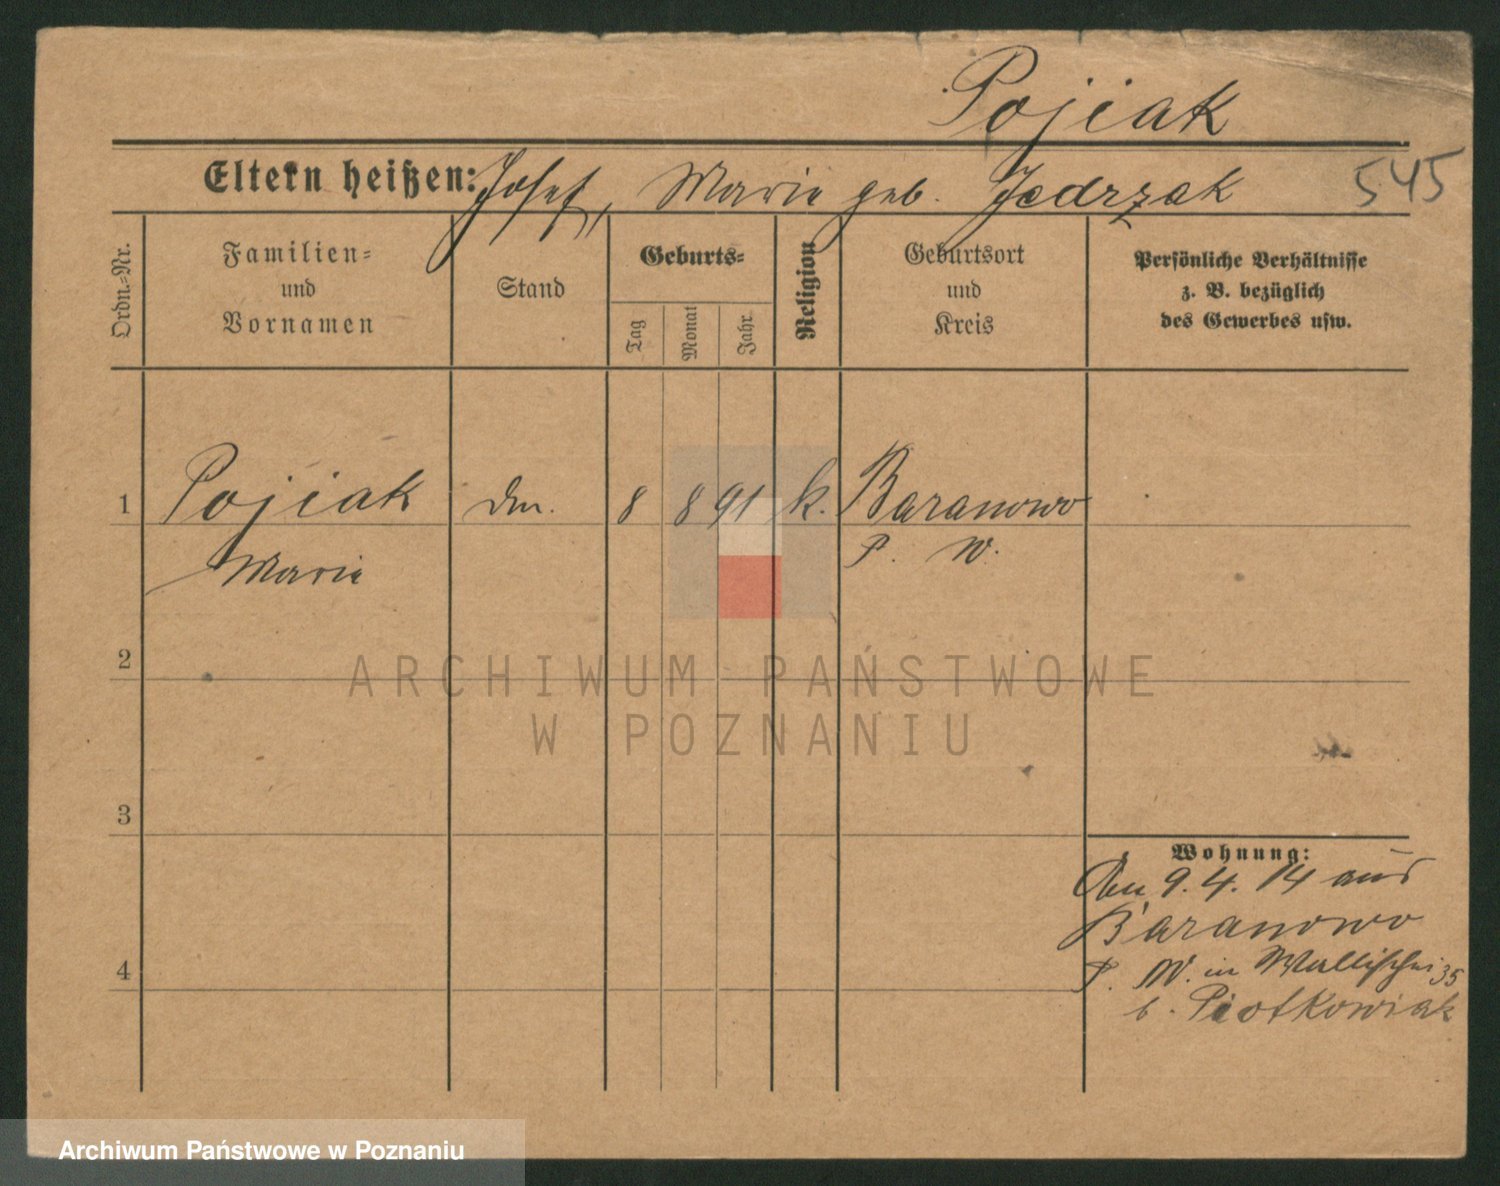 Pojiak
545
Eltern heißen: Josef, Marie geb. Jedrzak
Ordn.-Nr.
Familien- und Vornamen
Stand
Geburts-
Tag
Monat
Jahr
Religion
Geburtsort und Kreis
Persönliche Verhältnisse
z. B. bezüglich
des Gewerbes usw.
1 Pojiak dm. 8 8 91 k. Baranowo
Marie P. W.
2
3
4
Wohnung:
9. 4. 14 aus
Baranowo
P. W. in Wallischei 35
b. Piotkowiak
ARCHIWUM PAŃSTWOWE
W POZNANIU
Archiwum Państwowe w Poznaniu